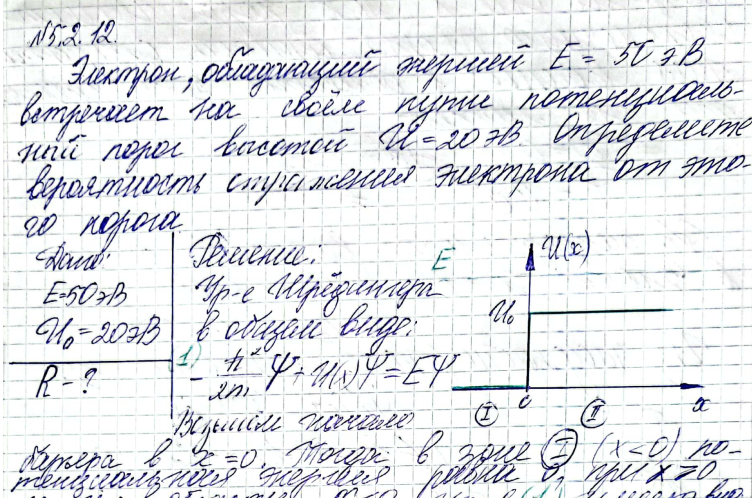 №5.2.12.
Электрон, обладающий энергией E = 50 эВ
встречает на своём пути потенциаль-
ный порог высотой U = 20 эВ. Определите
вероятность отражения электрона от это-
го порога
Дано:
E=50эВ
U₀ = 20эВ
R - ?
Решение:
Ур-е Шрёдингера
в общем виде:
1) - ħ²/2m Ψ + U(x)Ψ = EΨ
Возьмём начало
E
U(x)
U₀
0
x
I
II
барьера в x = 0. Тогда в зоне I (x<0) по-
тенциальная энергия равна 0, при x≥0